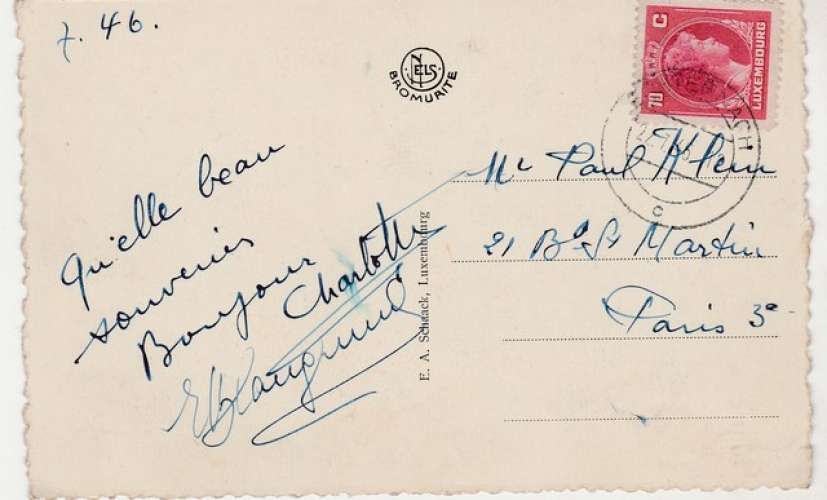 7. 46.
NELS
BROMURITE
C
70
LUXEMBOURG
ACH
22
C
Qu'elle beau
souvenir
Bonjour
Charlotte
Mr Paul Klein
21 Bd St Martin
Paris 3e
E. A. Schaack, Luxembourg